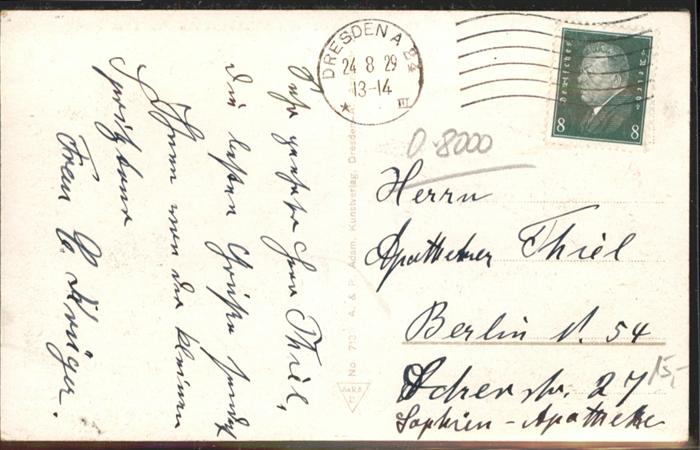 Sehr geehrter Herr Thiel,
die besten Grüße sendet
Ihnen von der kleinen
Spritztour
Frau C. Krüger.
No 713 A. & P. Adam, Kunstverlag, Dresden
DRESDEN A 24
24 8 29
13-14
III
Deutsches Reich
8 8
0-8000
Herrn
Apotheker Thiel
Berlin N. 54
str. 27
15,-
Sophien-Apotheke